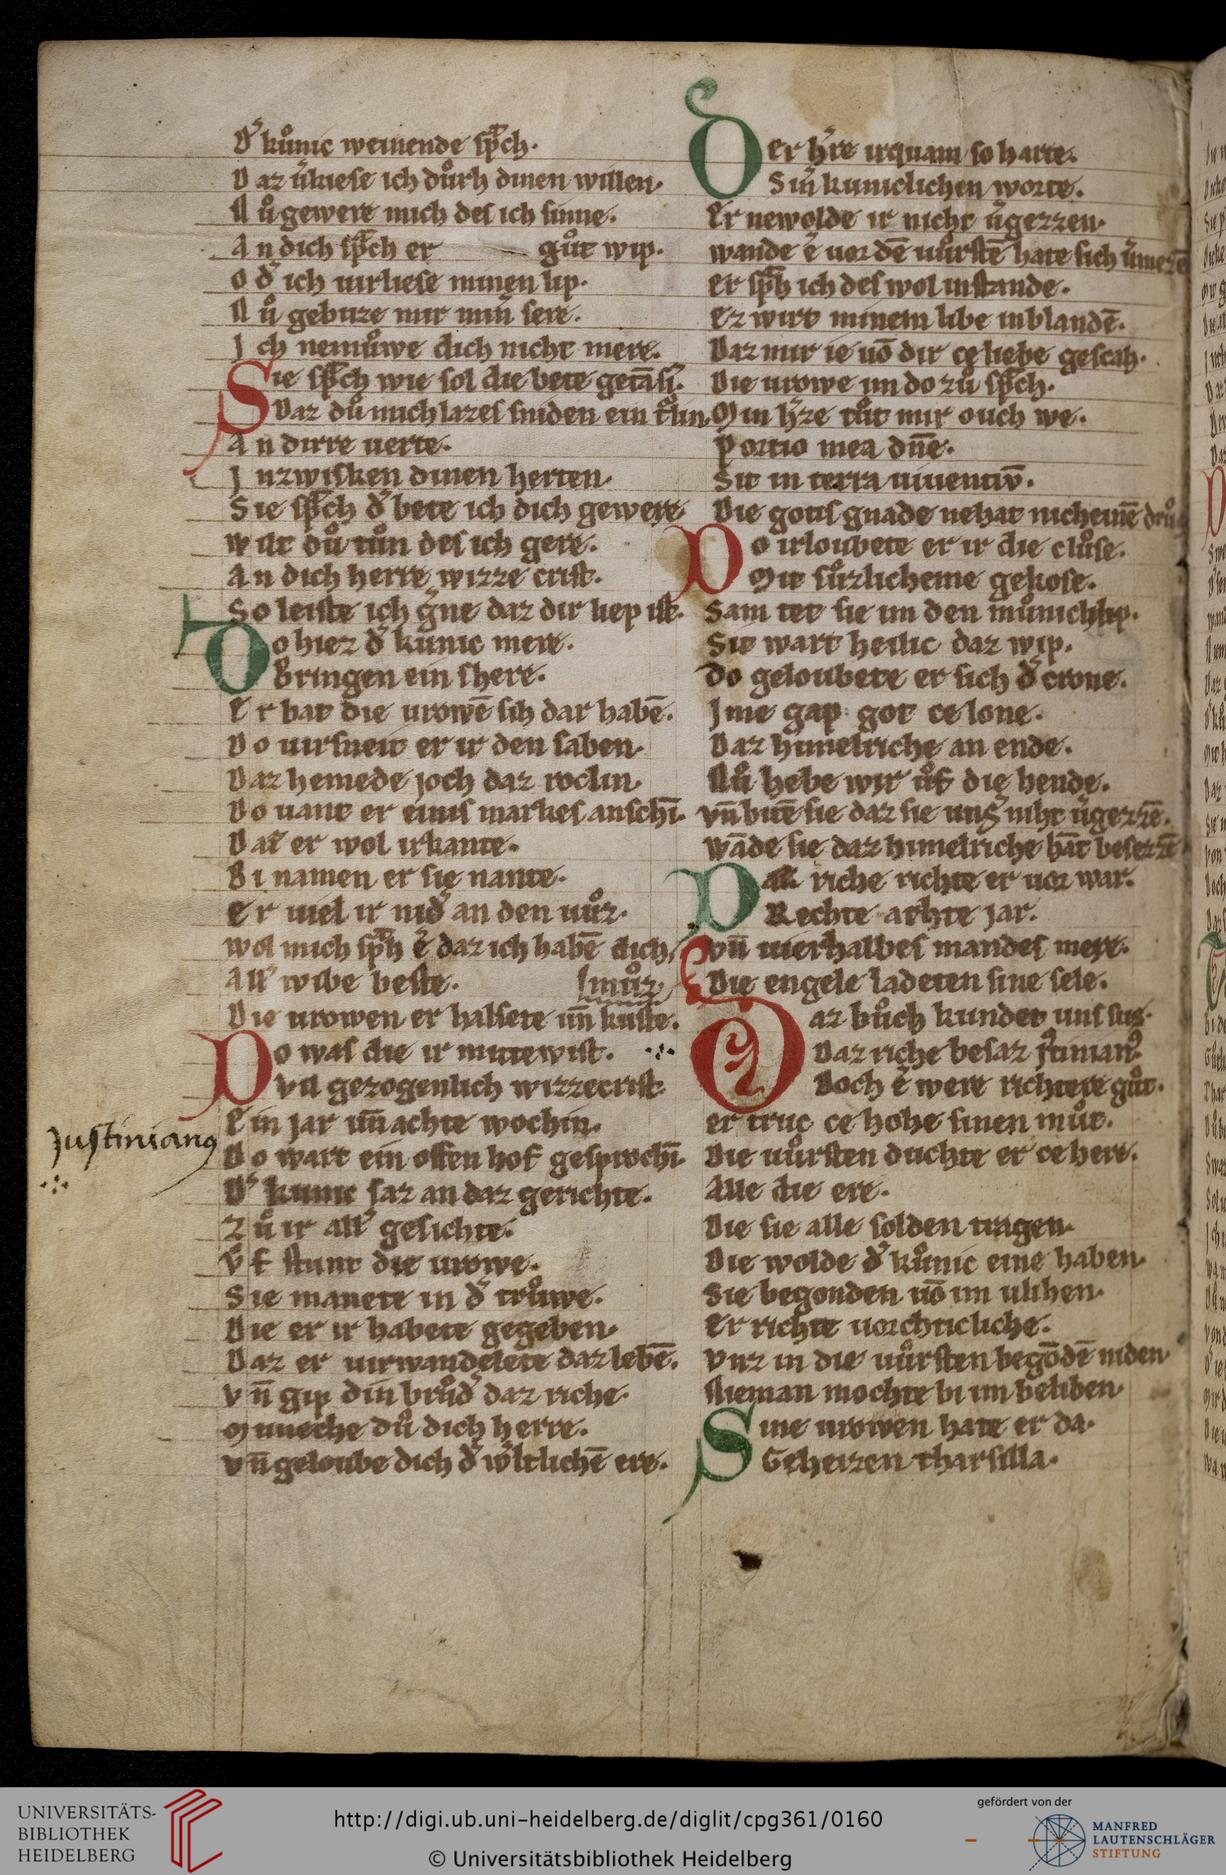 D' kůnic weinende sp̄ch.
Daz v̓kiese ich důrh dinen willen.
Nů gewere mich des ich sinne.
An dich sp̄ch er gůt wip.
od̓ ich virliese minen lip.
Nů gebuze mir min sere.
Ich nemůwe dich nicht mere.
Sie sp̄ch wie sol die bete getā si.
Daz dů mich lazes sniden ein
An dirre verte.
Inzwisken dinen herten.
Sie sp̄ch d̓ bete ich dich gewere
wilt dů tůn des ich gere.
An dich herre wizze crist.
So leiste ich g̓ne daz dir liep ist.
Do hiez d̓ kunic mere.
Bringen ein shere.
Er bat die vrowē sih dar habē.
Do virsneit er ir den saben.
Daz hemede joch daz roclin.
Do vant er einis markes anschī.
Daz er wol irkante.
Bi namen er sie nante.
Er viel ir nid̓ an den vůz.
wol mich sp̄h ē daz ich habē dich
all' wibe beste.
Die vrowen er halsete vn̄ kuste.
Do was die ir mitewist.
Vil gezogenlich wizzecrist.
Ein jar vn̄ achte wochin.
Do wart ein offen hof gesprochī.
D' kunic saz an daz gerichte.
Zů ir all' gesichte.
Vf stunt die vrowe.
Sie manete in d̓ trůwe.
Die er ir habete gegeben.
Daz er virwandelete daz lebē.
Vn̄ gip din brůd̓ daz riche.
Muneche dů dich herre.
Vn̄ geloube dich d̓ w̓ltlichē ere.
Justinianus
Der h̓re irquam so harte.
Sin̓ kuniclichen worte.
Er newolde ir nicht v̓gezzen.
wande ē vor dē vůrstē hate sich
er sp̄h ich des wol instande.
Ez wirt minem libe inblandē.
Daz mir ie vō dir ce liebe gescah.
Die vrowe im do zů sp̄ch.
Min h̓ze tůt mir ouch we.
Portio mea dn̄e.
Sit in terra viventiv̄.
Die gotis gnade nehat nicheinē
Do irloubete er ir die clůse.
Mit sůzlicheme gekose.
Sam tet sie im den můnichlip.
Sit wart heilic daz wip.
Do geloubete er sich d̓ crone.
Ime gap got ce lone.
Daz himelriche an ende.
Nů hebe wir ůf die hende.
Vn̄ bitē sie daz sie uns niht v̓gezzē.
wāde sie daz himelriche hāt besezzē
Daz riche richte er vor war.
Rechte achte jar.
Vn̄ vierhalbes mandes mere.
Die engele ladeten sine sele.
Daz bůch kundet uns sus.
Daz riche besaz
Doch ē were richtere gůt.
er truc ce hohe sinen můt.
Die vůrsten duchte er ce here.
Alle die ere.
Die sie alle solden tragen.
Die wolde d̓ kůnic eine haben.
Sie begonden vō im vlihen.
Er richte vorchticliche.
Vnz in die vůrsten begōdē niden
Nieman mochte bi im beliben.
Sine vrowen hate er da.
Geheizen tharsilla.
UNIVERSITÄTS-
BIBLIOTHEK
HEIDELBERG
http://digi.ub.uni-heidelberg.de/diglit/cpg361/0160
© Universitätsbibliothek Heidelberg
gefördert von der
MANFRED
LAUTENSCHLÄGER
STIFTUNG